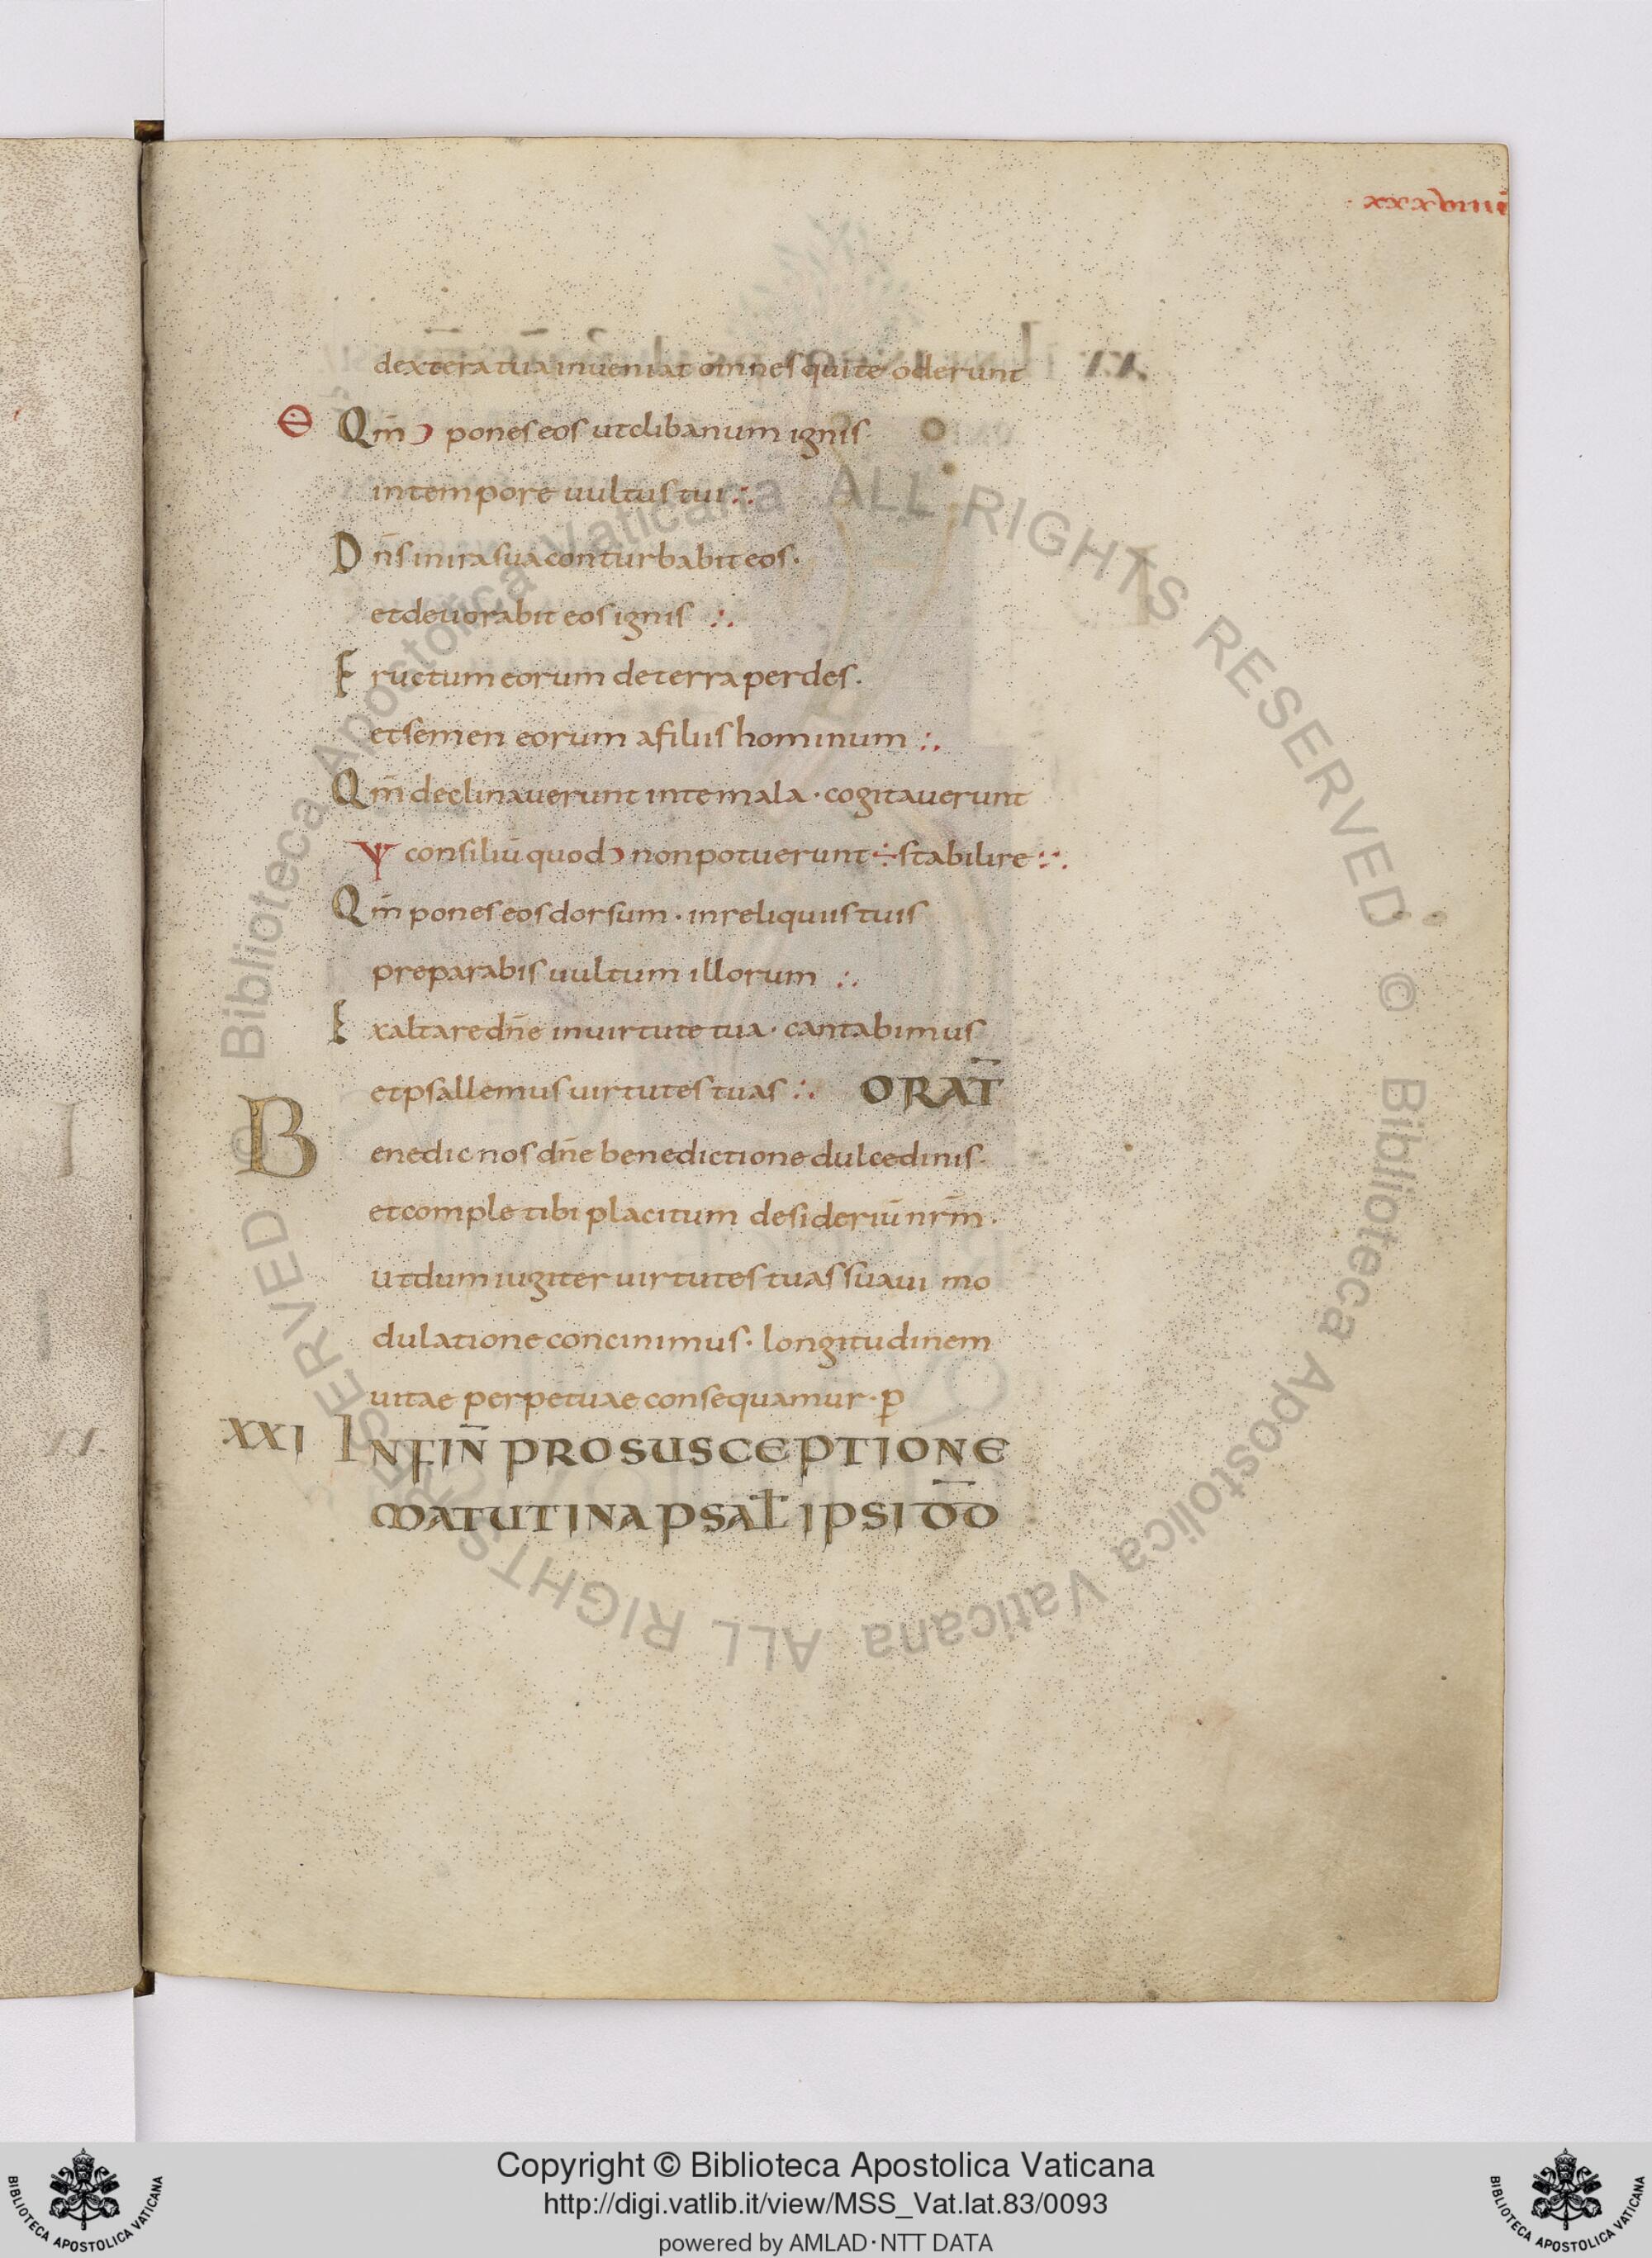 xxxviiii
dextera tua inueniat omnes qui te oderunt
Qm̄ pones eos ut clibanum ignis
in tempore uultus tui :.
Dn̄s in ira sua conturbabit eos.
et deuorabit eos ignis :.
Fructum eorum de terra perdes.
et semen eorum a filiis hominum :.
Qm̄ declinauerunt in te mala · cogitauerunt
consiliū quod non potuerunt ÷ stabilire :·.
Qm̄ pones eos dorsum · in reliquiis tuis
preparabis uultum illorum :.
Exaltare dn̄e in uirtute tua · cantabimus
et psallemus uirtutes tuas :. ORAT̄
Benedic nos dn̄e benedictione dulcedinis.
et comple tibi placitum desideriū nr̄m.
ut dum iugiter uirtutes tuas suaui mo
dulatione concinimus. longitudinem
uitae perpetuae consequamur · p̄
XXI IN FIN̄ PRO SUSCEPTIONE
MATUTINA PSAL̄ IPSI DD̄
Copyright © Biblioteca Apostolica Vaticana
http://digi.vatlib.it/view/MSS_Vat.lat.83/0093
powered by AMLAD·NTT DATA
BIBLIOTECA APOSTOLICA VATICANA
BIBLIOTECA APOSTOLICA VATICANA
© Biblioteca Apostolica Vaticana ALL RIGHTS RESERVED © Biblioteca Apostolica Vaticana ALL RIGHTS RESERVED